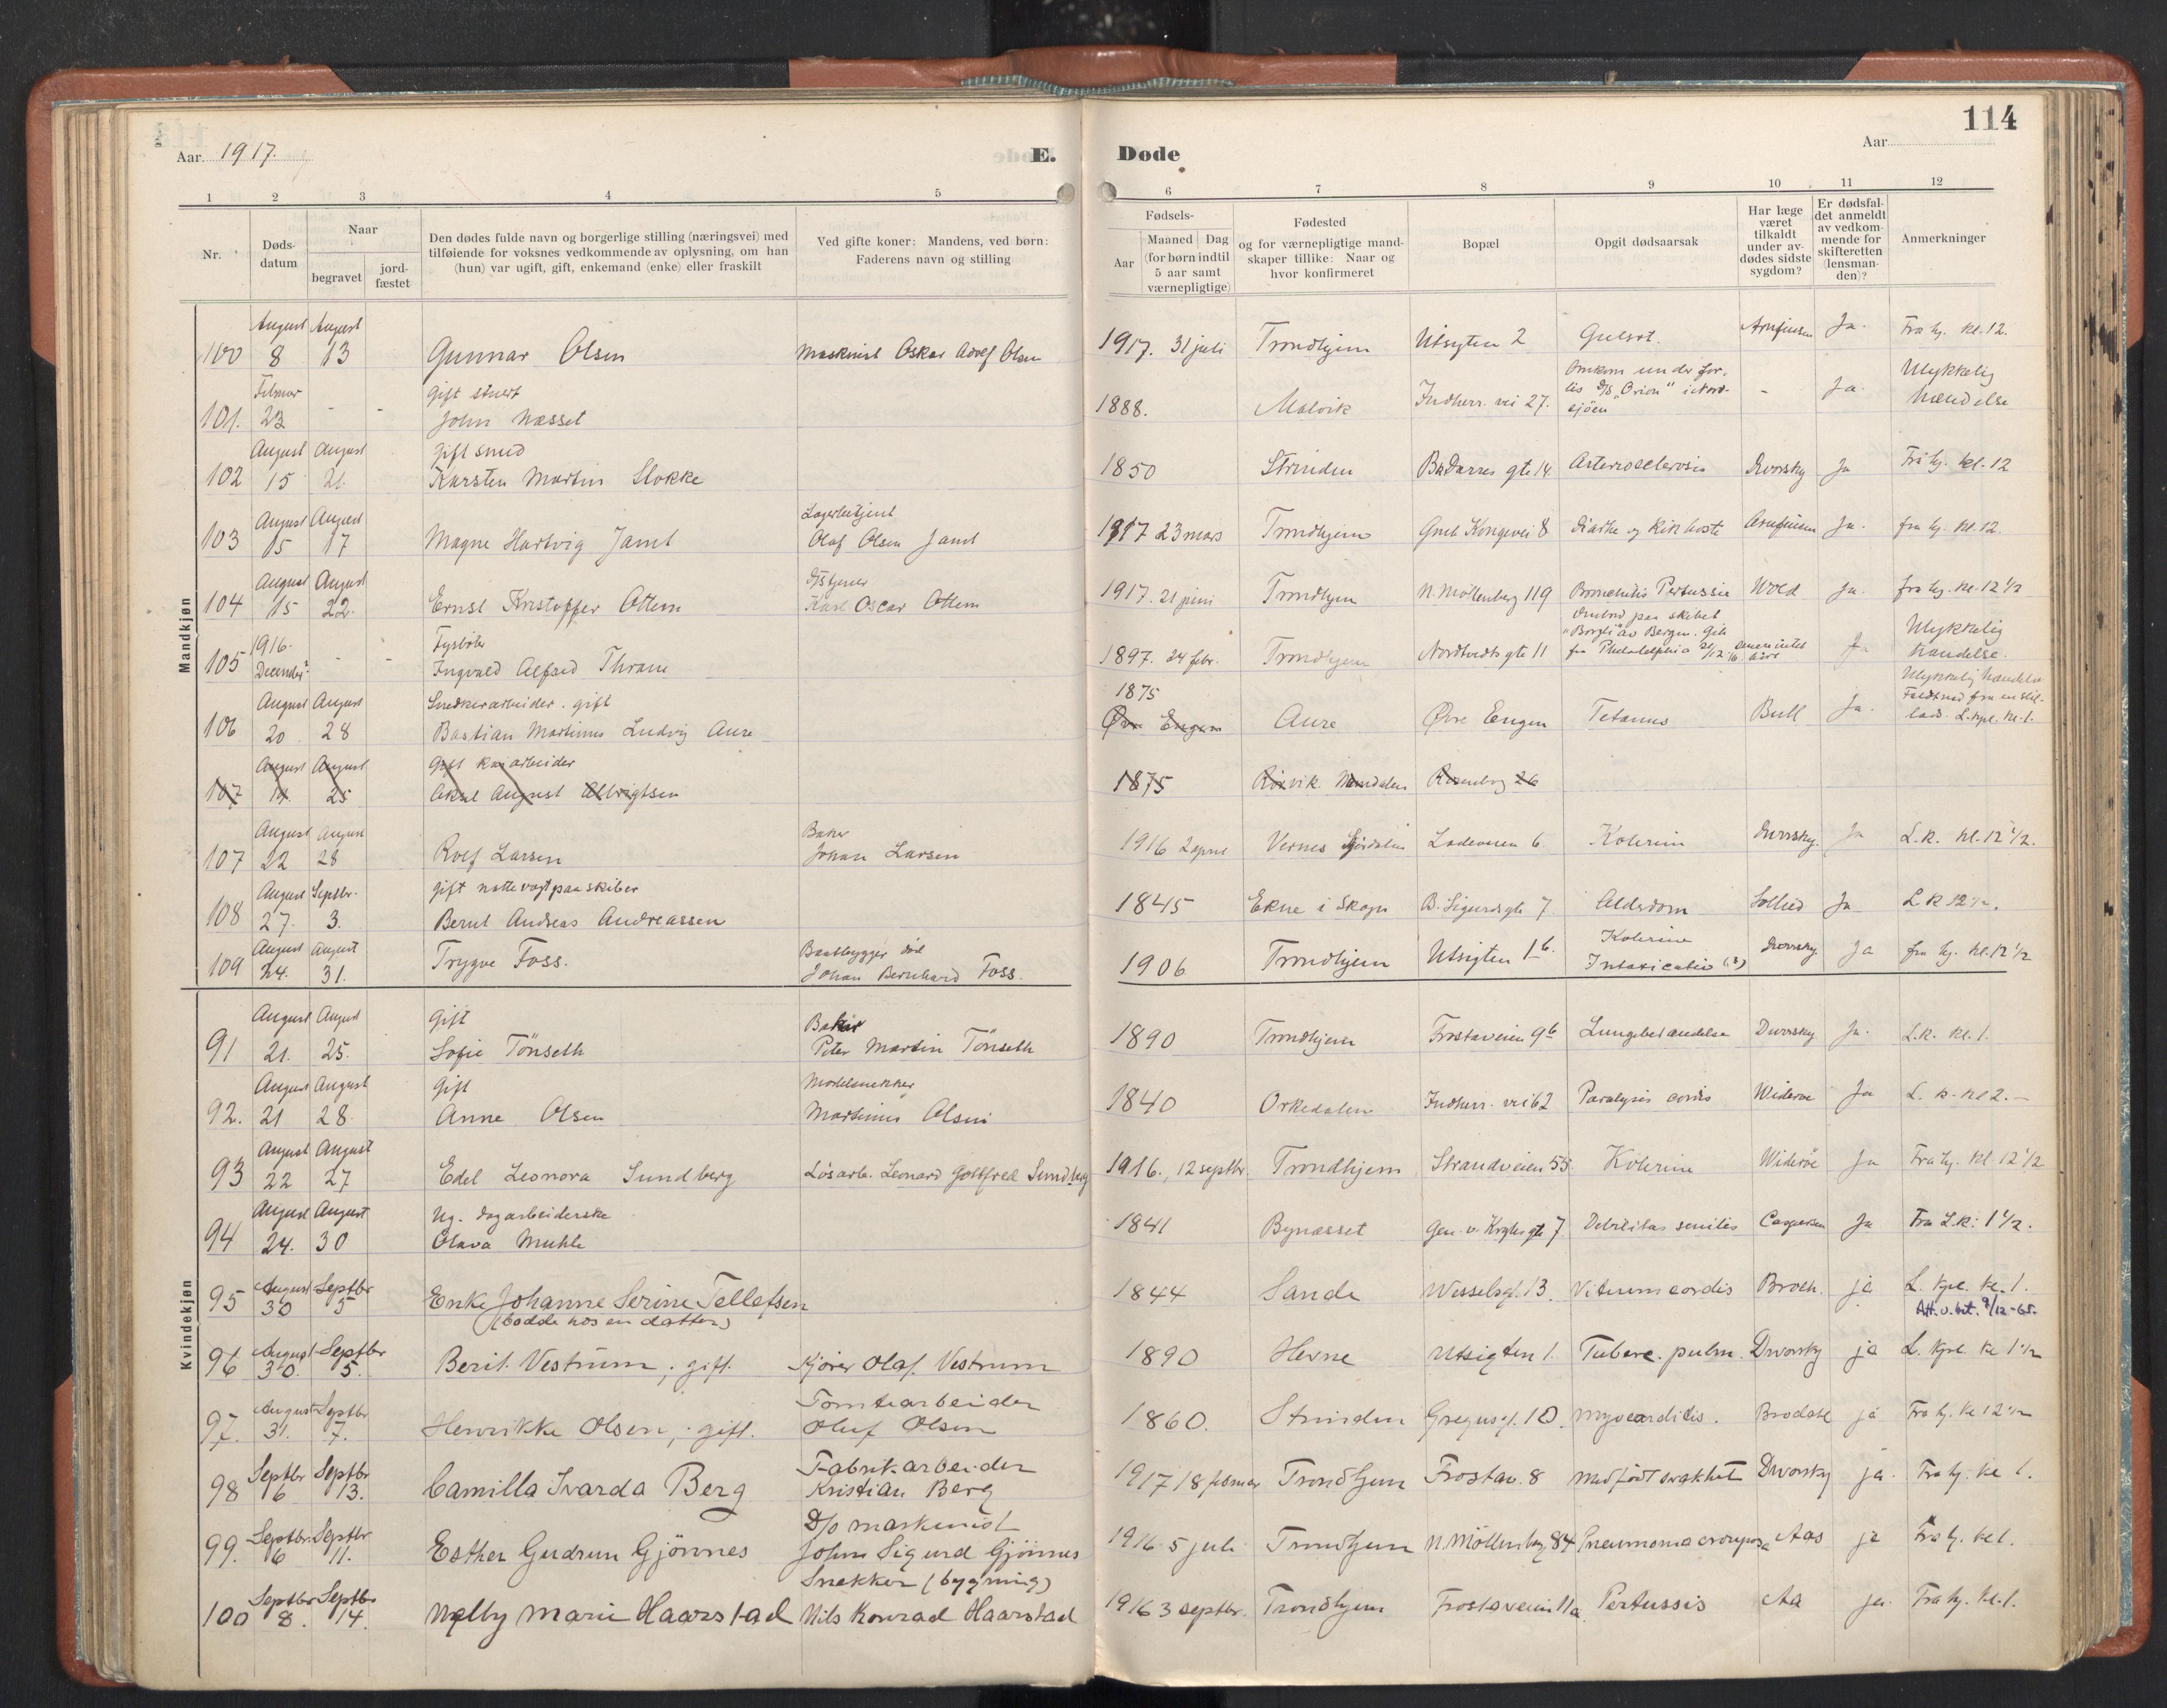 Aar 1917.
E. Døde
114
Aar
1 2 3 4 5 6 7 8 9 10 11 12
Nr.
Døds-
datum
Naar
begravet
jord-
fæstet
Den dødes fulde navn og borgerlige stilling (næringsvei) med
tilføiende for voksnes vedkommende av oplysning, om han
(hun) var ugift, gift, enkemand (enke) eller fraskilt
Ved gifte koner: Mandens, ved børn:
Faderens navn og stilling
Fødsels-
Aar
Maaned Dag
(for børn indtil
5 aar samt
værnepligtige)
Fødested
og for værnepligtige mand-
skaper tillike: Naar og
hvor konfirmeret
Bopæl
Opgit dødsaarsak
Har læge
været
tilkaldt
under av-
dødes sidste
sygdom?
Er dødsfal-
det anmeldt
av vedkom-
mende for
skifteretten
(lensman-
den)?
Anmerkninger
Mandkjøn
August August
100 8 13 Gunnar Olsen Maskinist Oskar Adolf Olsen 1917. 31 juli Trondhjem Utsigten 2 Gulsot. Ja. Fra hj. kl. 12.
Februar gift stuert Omkom under for-
lis D/S "Orion" i Nord-
sjöen
Ulykkelig
hændelse
101. 23 - - John Næsset 1888. Malvik Indherr. vei 27. - Ja.
August August gift smed
102 15 21. Karsten Martin Stokke 1850 Strinden gte 14. Arterosclerosis Dvorsky Ja Fra hj. kl. 12
August August Lagerbetjent
103 15 17 Magne Hartvig Jamt Olaf Olsen Jamt 1917 23 mars Trondhjem Kongevei 8 Diarhe og Kikhoste Ja. fra hj. kl. 12.
August August
104 15 22. Ernst Kristoffer Ottem Karl Oscar Ottem 1917. 21 juni Trondhjem N. Möllenberg 119 Bronchitis Pertussis Wold Ja. fra hj. kl. 12 1/2
1916. Fyrböter
Ombord paa skibet
"Borgli" av Bergen. Gik
fra Philadelphia 21/12 16
Ulykkelig
hændelse.
105 December? - - Ingvald Alfred Thrane 1897. 24 febr. Trondhjem gte 11 Ja
August August Snedkerarbeider. gift 1875
Ulykkelig hændelse
Faldt ned fra en stil-
lads. L. kpl. kl. 1.
106 20 28 Bastian Martinus Ludvig Aure Øvre Engen Aure Øvre Engen Tetanus Bull Ja.
August August gift kaiarbeider
107 14. 25 Aksel August Albrigtsen 1875 Rosenborg 26
August August Baker
107 22 28 Rolf Larsen Johan Larsen 1916 2 april Vernes Stjördalen Ladeveien 6. Kolerine Dvorsky. Ja L.K. kl. 12 1/2.
August Septbr. gift nattevagt paa skiber
108 27. 3. Bernt Andreas Andreassen 1845 Ekne i Skogn B. Sigurdsgte 7 Alderdom Ja L K 12 1/2.
August August Baatbygger död Kolerine
109 24. 31. Trygve Foss. Johan Bernhard Foss. 1906 Trondhjem Utsigten 1 b. Intoxicatio (?) Dvorsky. Ja fra hj. kl. 12 1/2
Kvindekjøn
August August Gift Baker
91 21. 25. Sofie Tönseth Peter Martin Tönseth 1890 Trondhjem Frostaveien 9b Lungebetændelse Dvorsky Ja. L.K. kl. 1.
August August Gift Modelsnekker
92. 21 28. Anne Olsen Martinus Olsen 1840 Orkedalen Indherr. vei 62 Paralysis cordis Wideröe Ja L. K. kl 2. -
August August
93 22 27 Edel Leonora Sundberg Lösarb. Leonard Gottfred Sundberg 1916., 12 septbr. Trondhjem Strandveien 55. Kolerine Wideröe Ja Fra hj. kl 12 1/2
August August Ug. dagarbeiderske
94 24. 30 Olava Muhle 1841 Bynæsset Gen. v. Kroghsgte 7. Debilitas senilis Caspersen Ja Fra L.K: 1 1/2.
August Septbr
95 30 5 Enke Johanne Serine Tellefsen 1844 Sande Wesselsgt. 13. Vitium cordis Broch. ja L. kpl. kl. 1.
(bodde hos en datter) Att. u. bet. 9/12-65.
August Septbr
96 30. 5. Berit Vestrum, gift. Kjörer Olaf Vestrum 1890 Hevne Utsigten 1. Tuberc. pulm. Dvorsky ja L. kpl. kl 1 1/2
August Septbr Tomtearbeider
97. 31. 7. Henrikke Olsen, gift. Oluf Olsen 1860. Strinden Gregusgt. 10. Myocarditis. ja Fra hj. kl 12 1/2
Septbr Septbr Fabrikarbeider
98 6 13. Camilla Ivarda Berg Kristian Berg 1917 18 februar Trondhjem Frostav. 8 Medfödt svakhet Dvorsky ja. Fra hj. kl 1.
Septbr. Septbr D/o maskinist
99. 6 11. Esther Gudrun Gjönnes John Sigurd Gjönnes 1916 5 juli Trondhjem N. Möllenberg 84 Pneumonia crouposa Aas ja Fra hj. kl 1.
Septbr Septbr Snekker (bygning)
100 8. 14. Nelly Marie Haarstad Nils Konrad Haarstad 1916 3 septbr. Trondhjem Frostaveien 11a Pertussis Aa ja. Fra hj. kl. 1.